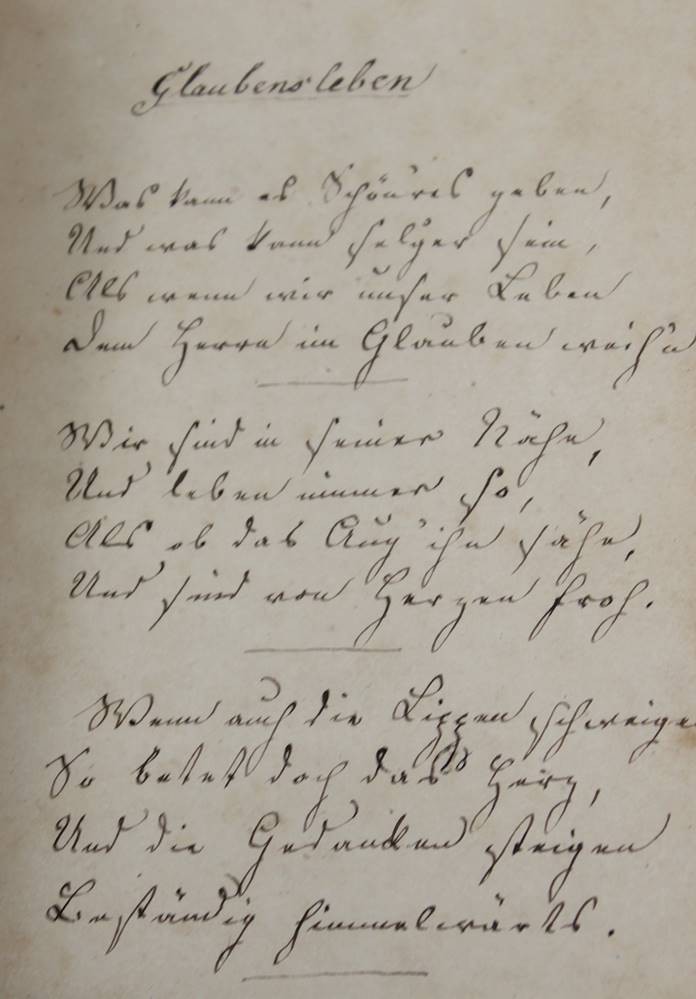 Glaubensleben
Was kann es Schön'res geben,
Und was kann sel'ger sein,
Als wenn wir unser Leben
Dem Herrn im Glauben weih'n
Wir sind in seiner Nähe,
Und leben immer so,
Als ob das Aug' ihn sähe,
Und sind von Herzen froh.
Wenn auch die Lippen schweige
So betet doch das Herz,
Und die Gedanken steigen
Beständig himmelwärts.